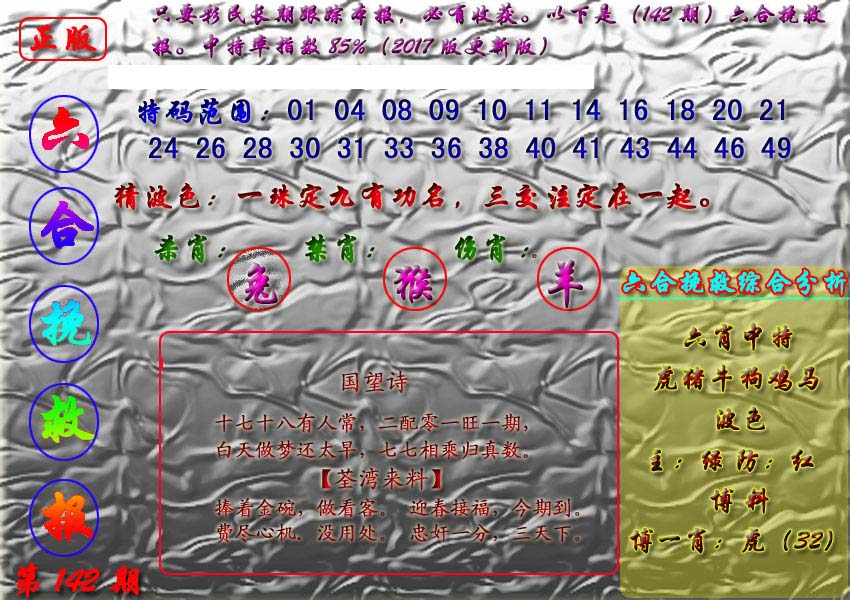 正版
只要彩民长期跟踪本报，必有收获。以下是（142期）六合挽救
报。中特率指数85%（2017版更新版）
特码范围：01 04 08 09 10 11 14 16 18 20 21
24 26 28 30 31 33 36 38 40 41 43 44 46 49
猜波色：一珠定九有功名，三交注定在一起。
杀肖：兔 禁肖：猴 伤肖：羊
六合挽救报
第142期
国望诗
十七十八有人常，二配零一旺一期，
白天做梦还太早，七七相乘归真数。
【荃湾来料】
捧着金碗，做看客。 迎春接福，今期到。
费尽心机．没用处。 忠奸一分，三天下。
六合挽救综合分析
六肖中特
虎猪牛狗鸡马
波色
主：绿防：红
博料
博一肖：虎（32）